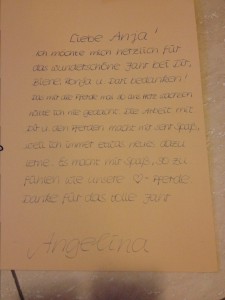 Liebe Anja!
Ich möchte mich herzlich für
das wunderschöne Jahr bei Dir,
Biene, Ronja u. bedanken!
Das mir die Pferde mal so ans Herz wachsen
hätte ich nie gedacht. Die Arbeit mit
Dir u. den Pferden macht mir sehr Spaß,
weil ich immer etwas neues dazu
lerne. Es macht mir Spaß, so zu
fühlen wie unsere ♡-Pferde.
Danke für das tolle Jahr
Angelina